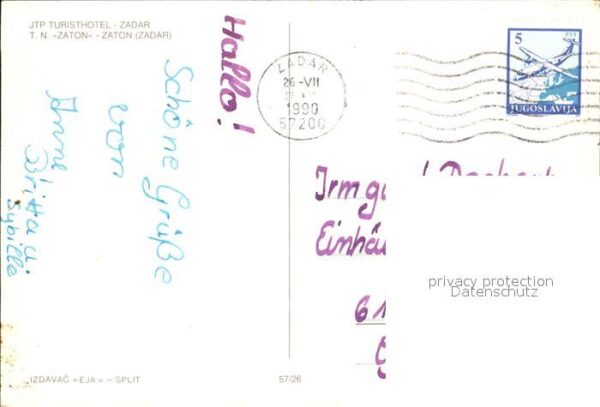 JTP TURISTHOTEL - ZADAR
T. N. »ZATON« - ZATON (ZADAR)
Hallo!
Schöne Grüße
von
Anne
Britta u.
Sybille
ZADAR
26-VII
1990
57200
5 PTT
JUGOSLAVIJA
Irmga
Einhäu
61
privacy protection
Datenschutz
IZDAVAČ »EJA« – SPLIT
57/26